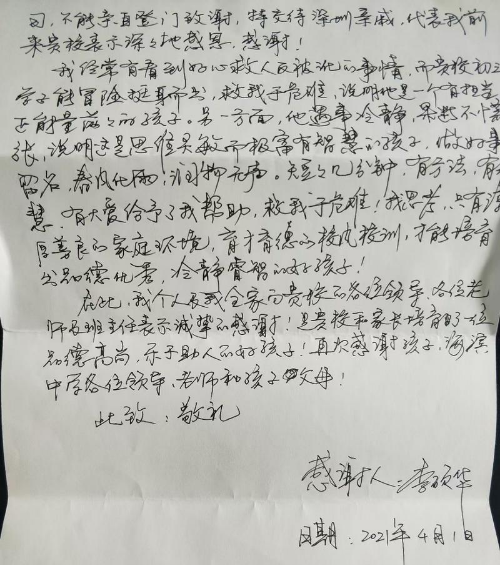 习，不能亲自登门致谢，特交待深圳亲戚，代表我前
来贵校表示深深地感恩，感谢！
我经常有看到好心救人反被讹的事情，而贵校初三
学子能冒险挺身而出，救我于危难，说明他是一个有担当
正能量满满的孩子。另一方面，他遇事冷静，果断不慌
张，说明这是思维灵敏而极富有智慧的孩子，做好事
留名，春风化雨，润物无声。短短几分钟，有方法，有
慧，有大爱给予了我帮助，救我于危难！我思考，只有
厚善良的家庭环境，育才育德的校风校训，才能培育
出品德优秀，冷静睿智的好孩子！
在此，我个人及我全家向贵校的各位领导、各位老
师及班主任表示诚挚的感谢！是贵校和家长培育了一位
品德高尚，乐于助人的好孩子！再次感谢孩子，海滨
中学各位领导、老师和孩子父母！
此致：敬礼
感谢人：李硕华
日期：2021年4月1日